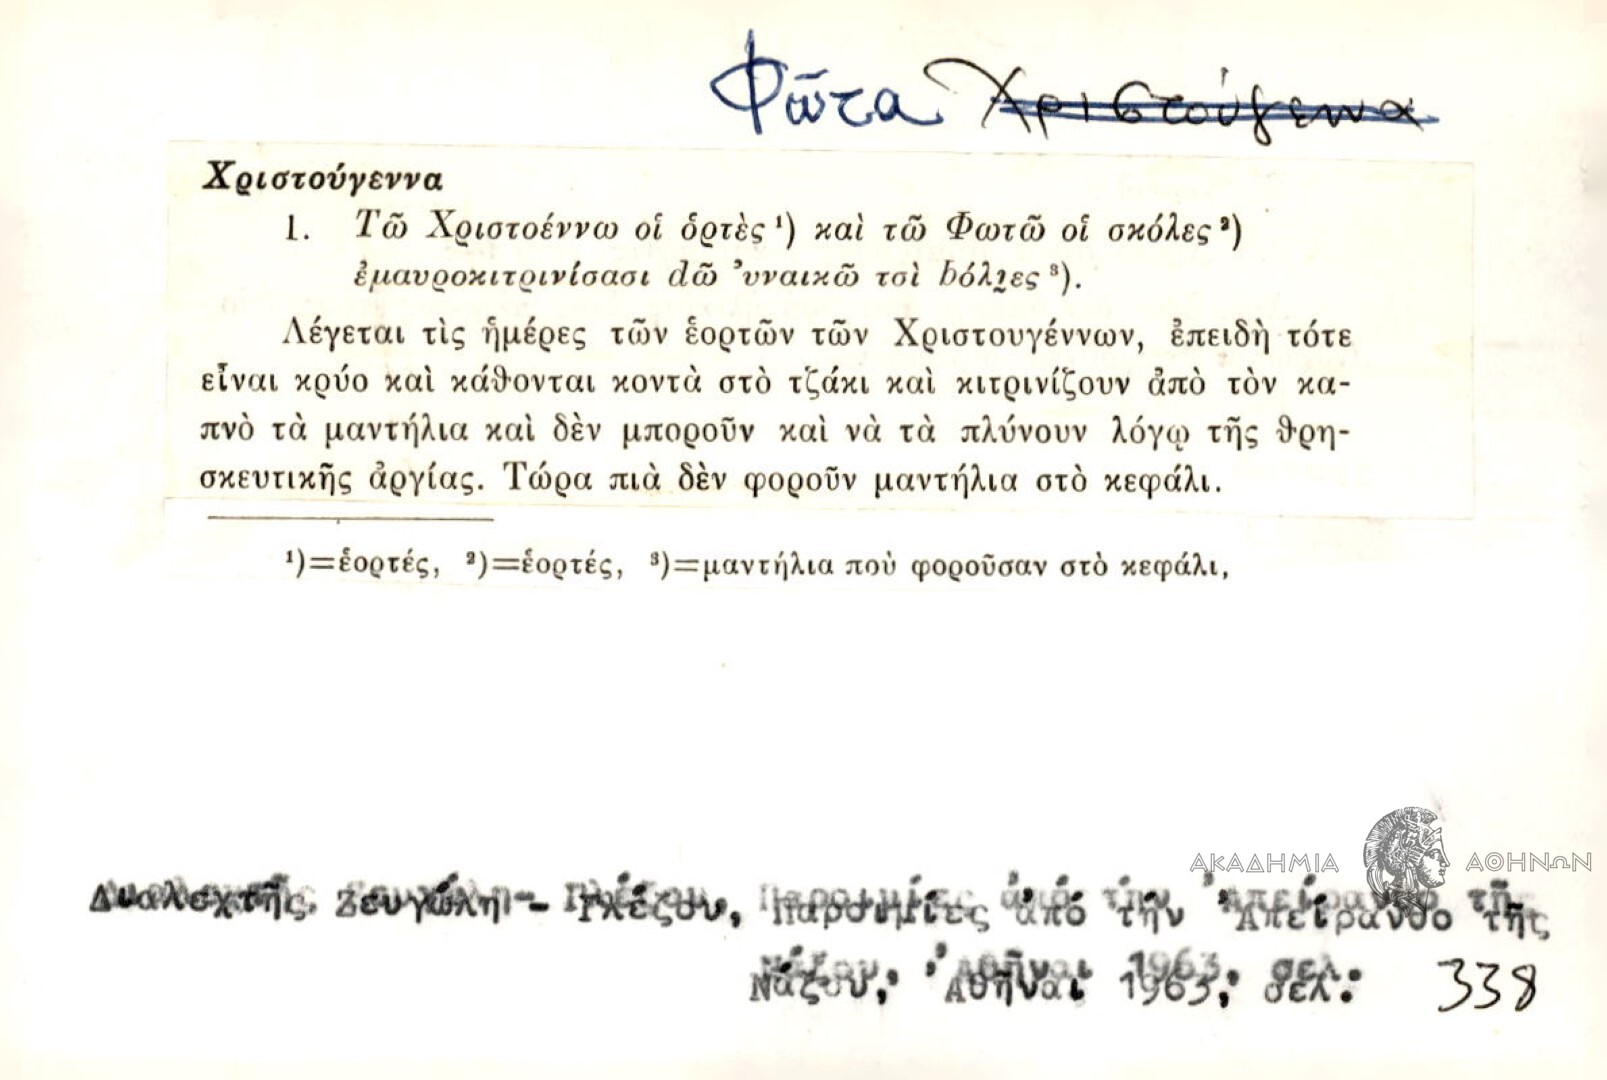 Φῶτα Χριστούγεννα
Χριστούγεννα
1. Τῶ Χριστοέννω οἱ ὁρτὲς ¹) καὶ τῶ Φωτῶ οἱ σκόλες ²)
ἐμαυροκιτρινίσασι dῶ ᾿υναικῶ τσὶ bόλι̯ες ³).
Λέγεται τὶς ἡμέρες τῶν ἑορτῶν τῶν Χριστουγέννων, ἐπειδὴ τότε
εἶναι κρύο καὶ κάθονται κοντὰ στὸ τζάκι καὶ κιτρινίζουν ἀπὸ τὸν κα-
πνὸ τὰ μαντήλια καὶ δὲν μποροῦν καὶ νὰ τὰ πλύνουν λόγῳ τῆς θρη-
σκευτικῆς ἀργίας. Τώρα πιὰ δὲν φοροῦν μαντήλια στὸ κεφάλι.
¹)=ἑορτές, ²)=ἑορτές, ³)=μαντήλια ποὺ φοροῦσαν στὸ κεφάλι,
ΑΚΑΔΗΜΙΑ ΑΘΗΝΩΝ
Διαλεχτῆς Ζευγώλη - Γλέζου, Παροιμίες ἀπό τήν Ἀπείρανθο τῆς
Νάξου, Ἀθῆναι 1963, σελ. 338